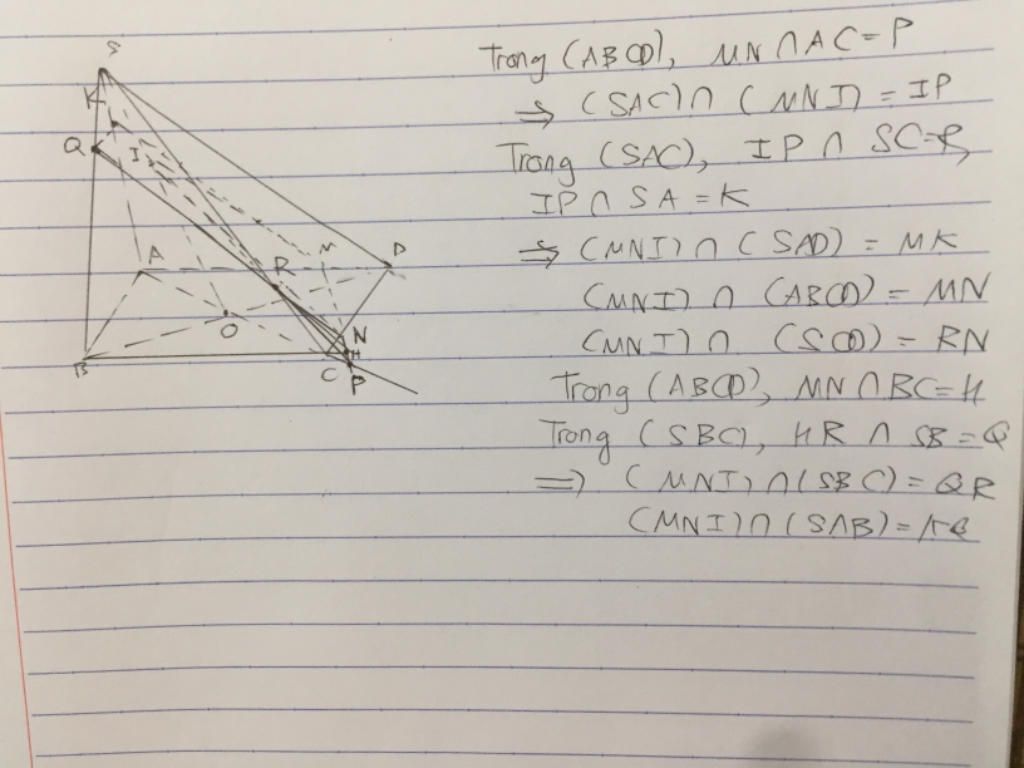 S
K
Q
I
A
M
D
R
O
N
H
B
C
P
Trong (ABCD), MN ∩ AC = P
⇒ (SAC) ∩ (MNI) = IP
Trong (SAC), IP ∩ SC = R,
IP ∩ SA = K
⇒ (MNI) ∩ (SAD) = MK
(MNI) ∩ (ABCD) = MN
(MNI) ∩ (SCD) = RN
Trong (ABCD), MN ∩ BC = H
Trong (SBC), HR ∩ SB = Q
⇒ (MNI) ∩ (SBC) = QR
(MNI) ∩ (SAB) = KQ